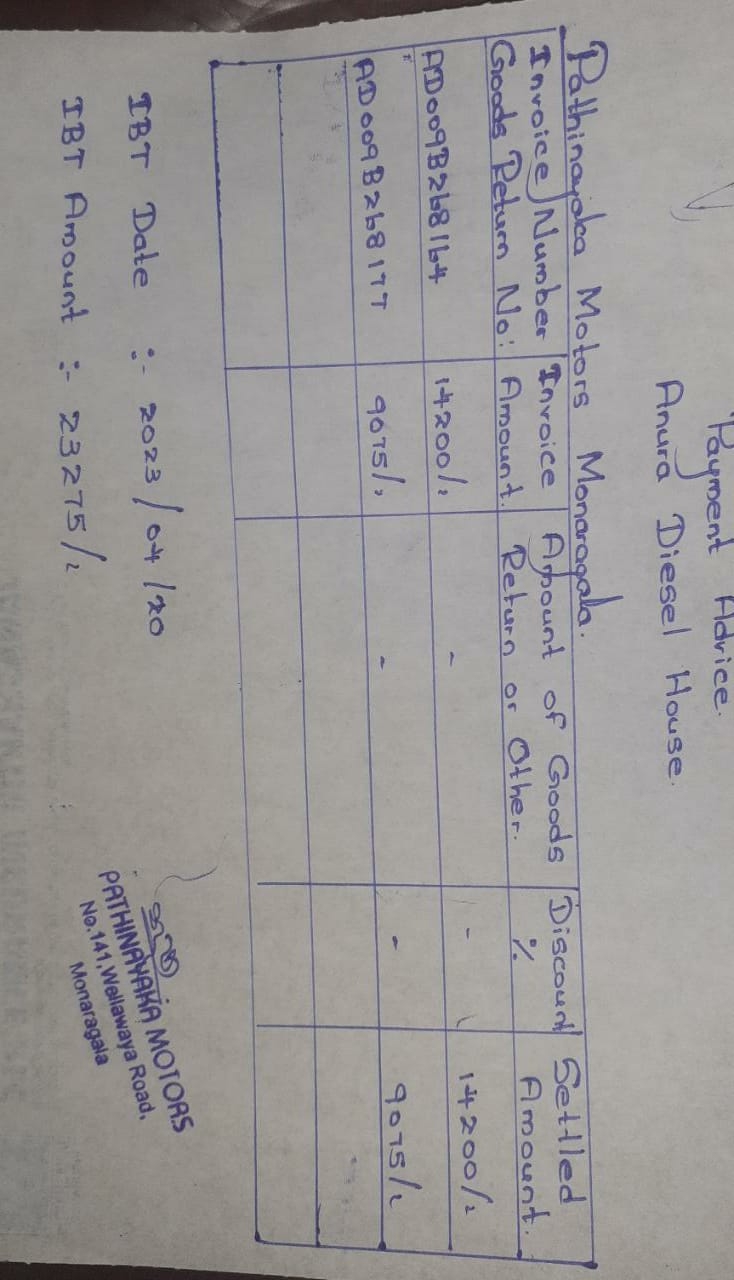 Payment Advice.
Anura Diesel House.
Pathinayaka Motors Monaragala.
Invoice Number Goods Return No: Invoice Amount. Amount of Goods Return or Other. Discount % Settled Amount.
AD009B268164 14200/= - - 14200/=
AD009B268177 9075/= - - 9075/=
IBT Date :- 2023/04/20
IBT Amount :- 23275/=
PATHINAYAKA MOTORS
No.141,Wellawaya Road,
Monaragala